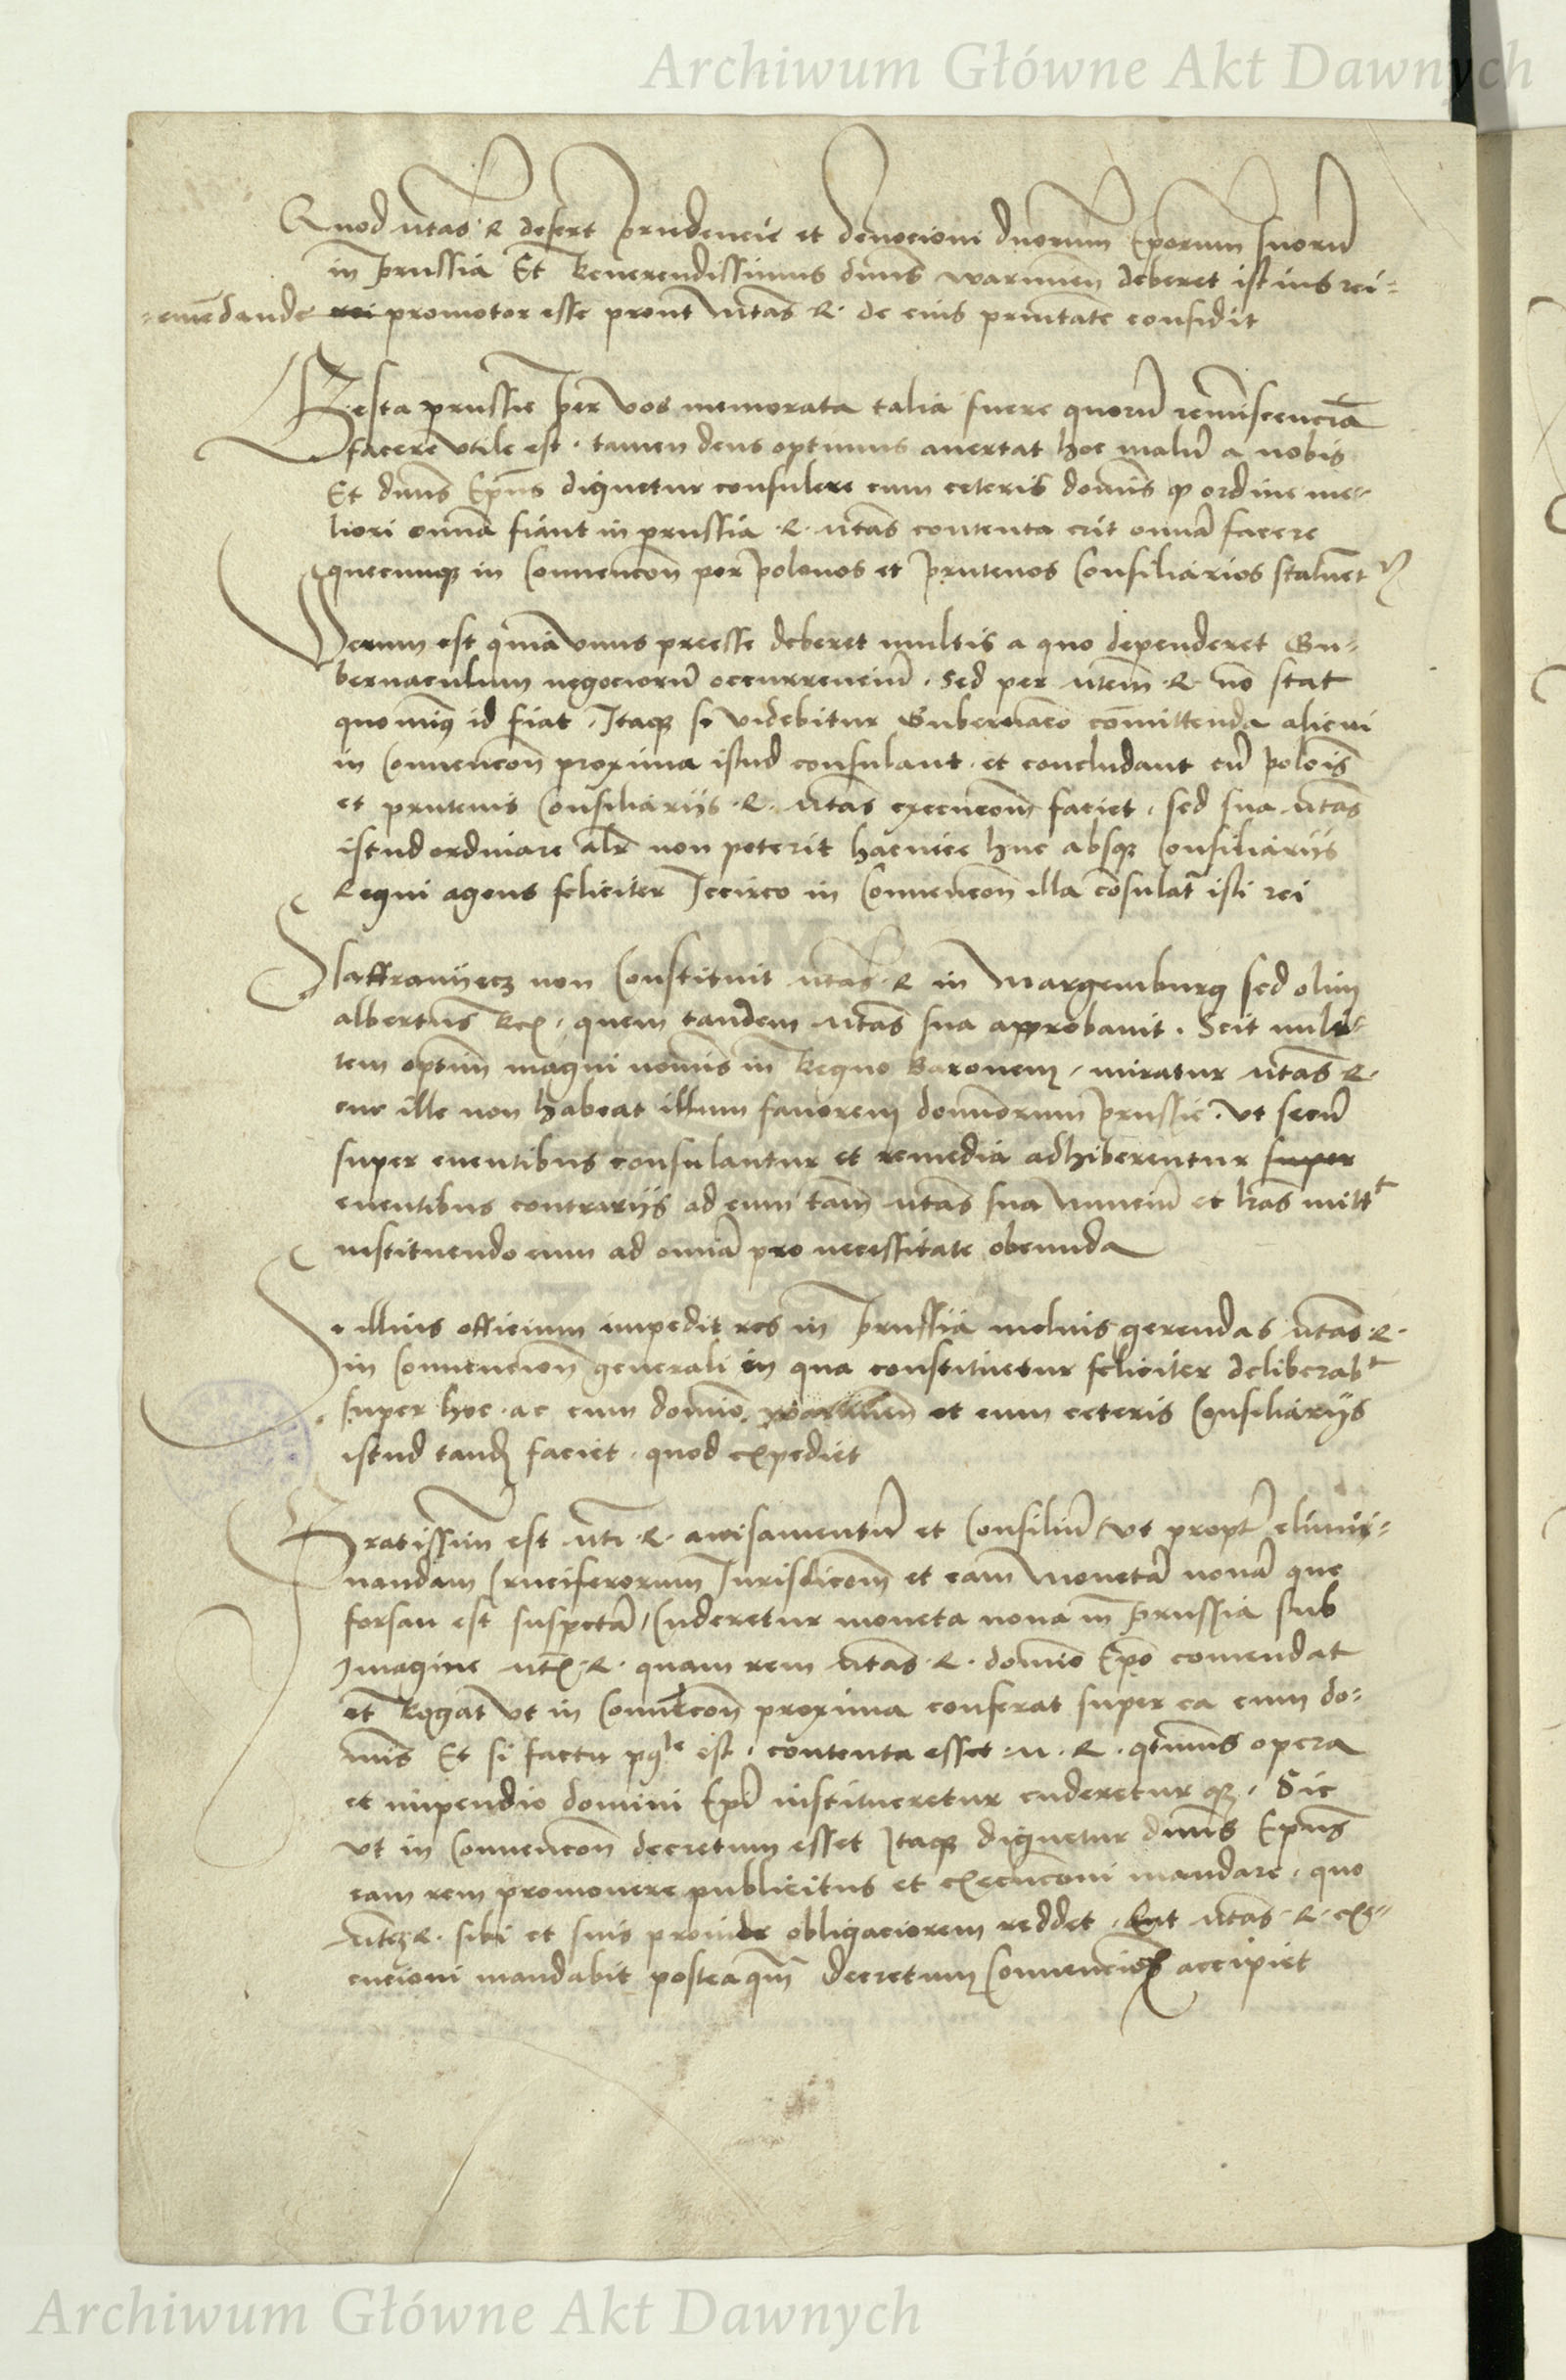 Archiwum Główne Akt Dawnych
Quod mtas R defert prudencie et devocioni duorum Eporum suorũ
in prussia Et Reverendissimus dnus warmien deberet istius rei-
-emẽdande rei promotor esse prout mtas R. de eius pruitate confidit
Gesta prussie per vos memorata talia fuere quorũ reminiscenciã
facere utile est. tamen deus optimus avertat hoc malũ a nobis
Et dnus Epus dignetur consulere cum ceteris domis qp ordine me-
liori omnia fiant in prussia R. mtas contenta erit omnia facere
quecunqz in Convencon per polonos et prutenos Consiliarios
Verum est quia unus preesse deberet multis a quo dependeret Gu-
bernaculum negociorũ occurrenciũ. Sed per mtem R. nõ stat
quominus id fiat. Itaqz si videbitur Gubernacio cõmittenda alicui
in Convencon proxima istud consulant et concludant cũ polonis
et prutenis Consiliariis. R. mtas execucom faciet. sed sua mtas
istud ordinare alr non poterit hactenus huc absqz Consiliariis
Regni agens feliciter Iccirco in Convencon illa cõsulat isti rei
Schaffranyecz non Constituit mtas R in Margemburg sed olim
albertus Rex. quem tandem mtas sua approbavit. Scit mili-
tem optim magni nomis in Regno Baronem. miratur mtas R.
cur ille non habeat illum favorem dominorum prussie. ut secũ
super eventibus consulantur et remedia adhiberentur super
eventibus contrariis ad eum tam mtas sua nunciũ et lras mittt
instituendo eum ad omnia pro necessitate obeunda
Si illius officium impedit res in prussia melius gerendas mtas R.
in Convencion generali in qua constituetur feliciter deliberabt
super hoc. ac cum domio warmien et cum ceteris Consiliariis
istud tandẽ faciet. quod expediet
Gratissim est mti R. avisamentũ et Consiliũ ut propt elimi-
nandam Cruciferorum Iurisdicom et eam Monetã novã que
forsan est suspecta, Cuderetur moneta nova in prussia sub
Imagine mtis R. quam rem mtas R. domio Epo comendat
et Rogat ut in Convencon proxima conferat super ea cum do-
mis Et si factu est. contenta esset m. R. qtinus opera
et impendio domini Epi institueretur cuderetur qz. Sic
ut in Convencon decretum esset Itaqz dignetur dnus Epus
eam rem promovere publicitus et execucioni mandare. quo
mtez R. sibi et suis proinde obligaciorem reddet. mtas R. exe-
cucioni mandabit posteaqm decretum Convencionis accipiet
Archiwum Główne Akt Dawnych